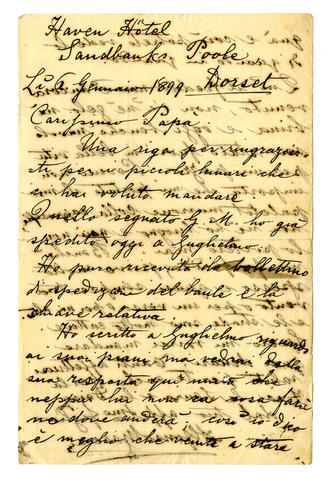 Haven Hotel
Sandbanks Poole
6 Gennaio 1899 Dorset
Carissimo Papa.
Una riga per ringraziar-
ti per i piccoli lunari che
ci hai voluto mandare
Quello segnato G. M. ho già
spedito oggi a Guglielmo.
Ho pure ricevuto bollettino
di spedizione del baule e la
chiave relativa.
Ho scritto a Guglielmo riguardo
ai suoi piani ma vedrai dalla
sua risposta qui unita che
neppur lui non sa cosa farà
ne dove anderà, cosi io dico
è meglio che venite a stare